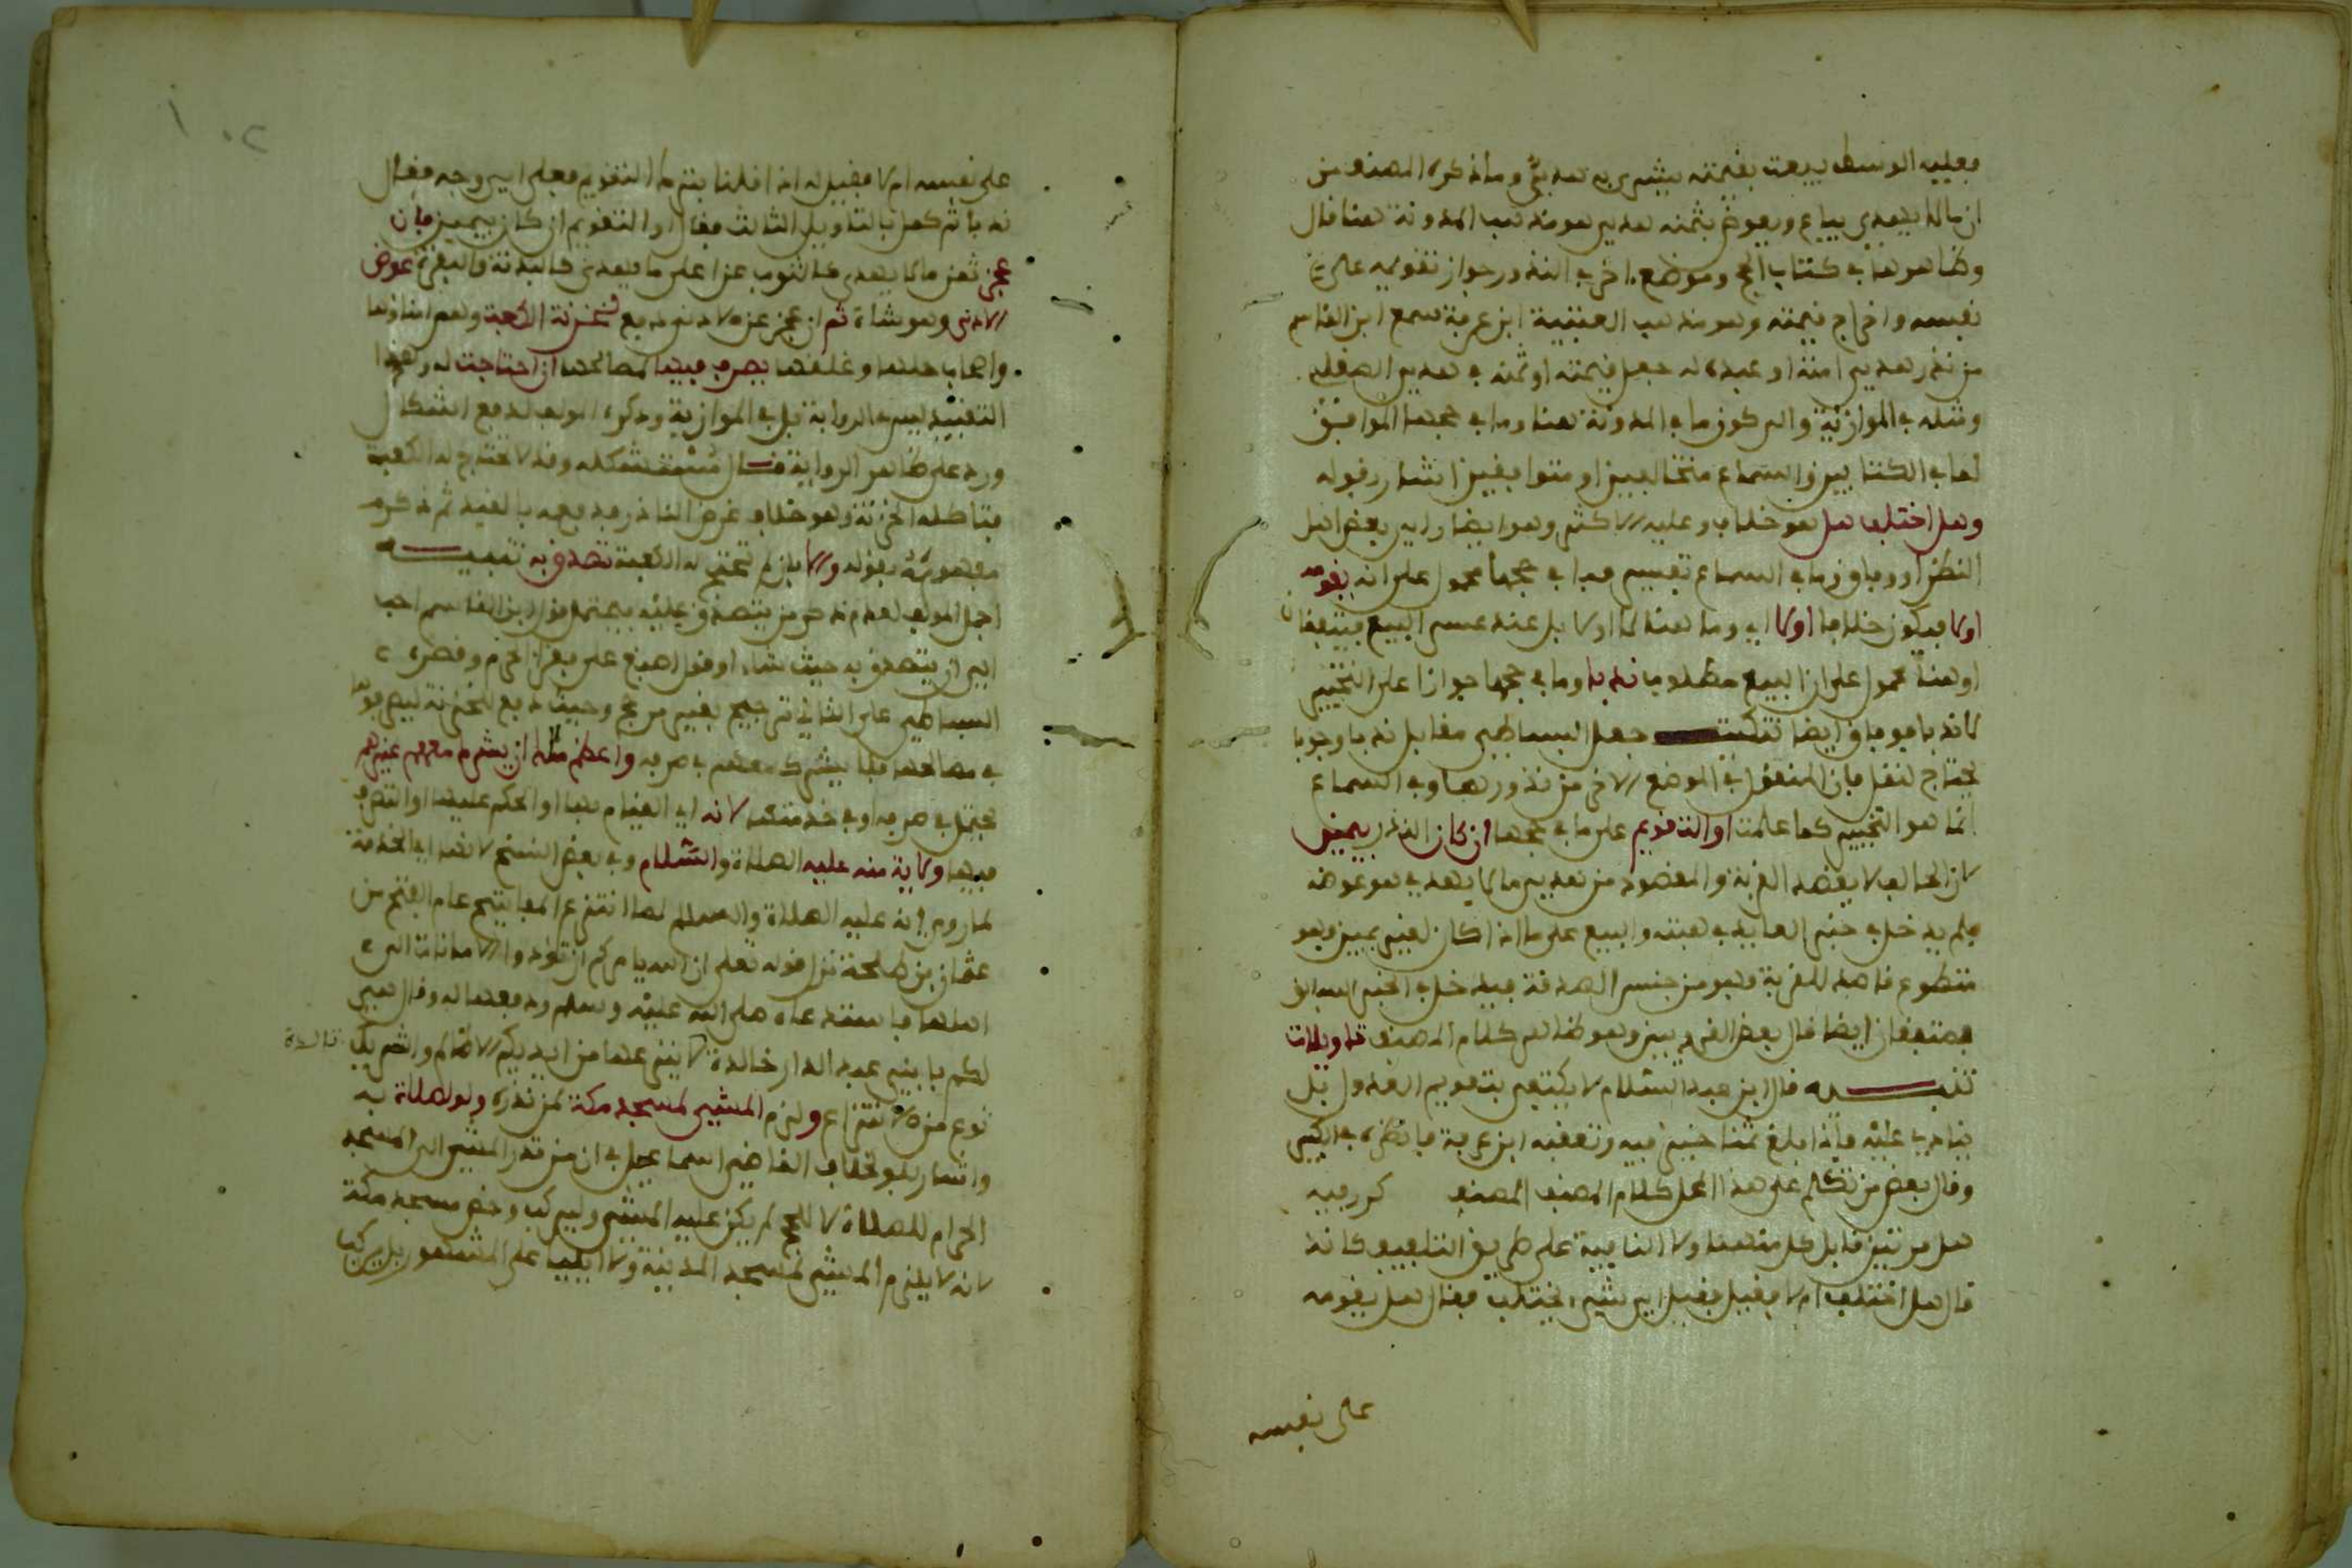 فعليه الوسط يبعث بقيمته يشترى به هدي وما ذكره المصنف من
ان ما لا يهدى يباع ويعوض بثمنه هدي هو مذهب المدونة هنا قال
وظاهرها في كتاب الحج وموضع اخر في النذور جواز تقويمه على
نفسه واخراج قيمته وهو مذهب العتبية ابن عرفة سمع ابن القاسم
من نذر هدي امته او عبده له جعل قيمته او ثمنه في هدي الصقلي
ومثله في الموازية والى كون ما في المدونة هنا وما في حجها الموافق
لها في الكتابين والسماع متخالفين او متوافقين اشار بقوله
وهل اختلف هل هو خلاف وعليه الاكثر وهو ايضا راي بعض اهل
النظر او وفاق وما في السماع تفسير فما في حجها محمول على انه يقومه
اولا فيكون خلافا اولا اي وما هنا لا اولا بل عند عسر البيع فيتفقان
او هنا محمول على ان البيع مطلوب ندبا وما في حجها جوازا على التخيير
لا ندبا فوفاق ايضا تنكيت جعل البساطي مقابل ندبا وجوبا
يحتاج لنقل فان المنقول في الموضع الاخر من نذورها وفي السماع
انما هو التخيير كما علمت او التقويم على ما في حجها ان كان النذر بيمين
لان الحالف لا يقصد القربة والمقصود من هدي ما لا يهدى هو عوضه
فلم يدخل في خبر العايد في هبته والبيع على ما اذا كان لغير يمين فهو
متطوع قاصد للقربة فهو من جنس الصدقة فيدخل في الخبر السابق
فمتفقان ايضا قال بعض القرويين وهو ظاهر كلام المصنف تاويلات
تنبيه قال ابن عبد السلام لا يكتفى بتقويم العدول بل
ينادى عليه فاذا بلغ ثمنا خير فيه وتعقبه ابن عرفة فانظره في الكبير
وقال بعض من تكلم على هذا المحل كلام المصنف المصنف كرر فيه
هل مرتين قابل كل منهما ولا الثانية على طريق التلفيف كانه
قال هل اختلف ام لا فقيل فقيل اي شيء اختلف فقال هل يقومه
على نفسه
على نفسه ام لا فقيل له اذا قلنا يلزم التقويم فعلى اي وجه فقال
ندبا ثم كمل بالتاويل الثالث فقال او التقويم ان كان بيمين فان
عجز ثمن ما لا يهدى كالثوب عن اعلى ما يهدى كالبدنة والبقرة عوض
الادنى وهو شاة ثم ان عجز عن الادنى دفع لخزنة الكعبة وهم امناؤها
واصحاب حلها وغلقها يصرف فيها لمصالحها ان احتاجت له وهذا
التقييد ليس في الرواية بل في الموازية وذكره المولف لدفع اشكال
ورد على ظاهر الرواية قال مستشكله وقد لا تحتاج له الكعبة
فتاكله الخزنة وهو خلاف غرض الناذر فدفعه بالقيد ثم ذكر
مفهومه بقوله والا بان لم تحتج له الكعبة تصدق به تنبيه
اجمل المولف لعدم ذكر من يتصدق عليه فيحتمل قول ابن القاسم احب
الي ان يتصدق به حيث شاء او قول اصبغ على فقراء الحرم وقصره
البساطي على الثاني ترجيح بغير مرجح وحيث دفع للخزنة ليصرفوها
في مصالحها فلا يشرك معهم في صرفه واعظم مالك ان يشرك معهم غيرهم
يحتمل في صرفه او في خدمتها لانه اي القيام بها او الحكم عليها او التصرف
فيها ولاية منه عليه الصلاة والسلام وفي بعض النسخ لانها اي الخدمة
لما روي انه عليه الصلاة والسلام لما انتزع المفاتيح عام الفتح من
عثمان بن طلحة نزل قوله تعلى ان الله يامركم ان تؤدوا الامانات الى
اهلها فاستدعاه صلى الله عليه وسلم ودفعها له وقال هي
لكم يا بني عبد الدار خالدة لا ينزعها من ايديكم الا ظالم والتشريك
تالدة
نوع من الانتزاع ولزم المشي لمسجد مكة لمن نذره ولو لصلاة به
واشار بلو لخلاف القاضي اسماعيل في ان من نذر المشي الى المسجد
الحرام للصلاة لا للحج لم يكن عليه المشي وليركب وخص مسجد مكة
لانه لا يلزم المشي لمسجد المدينة ولا ايليا على المشهور بل يركب